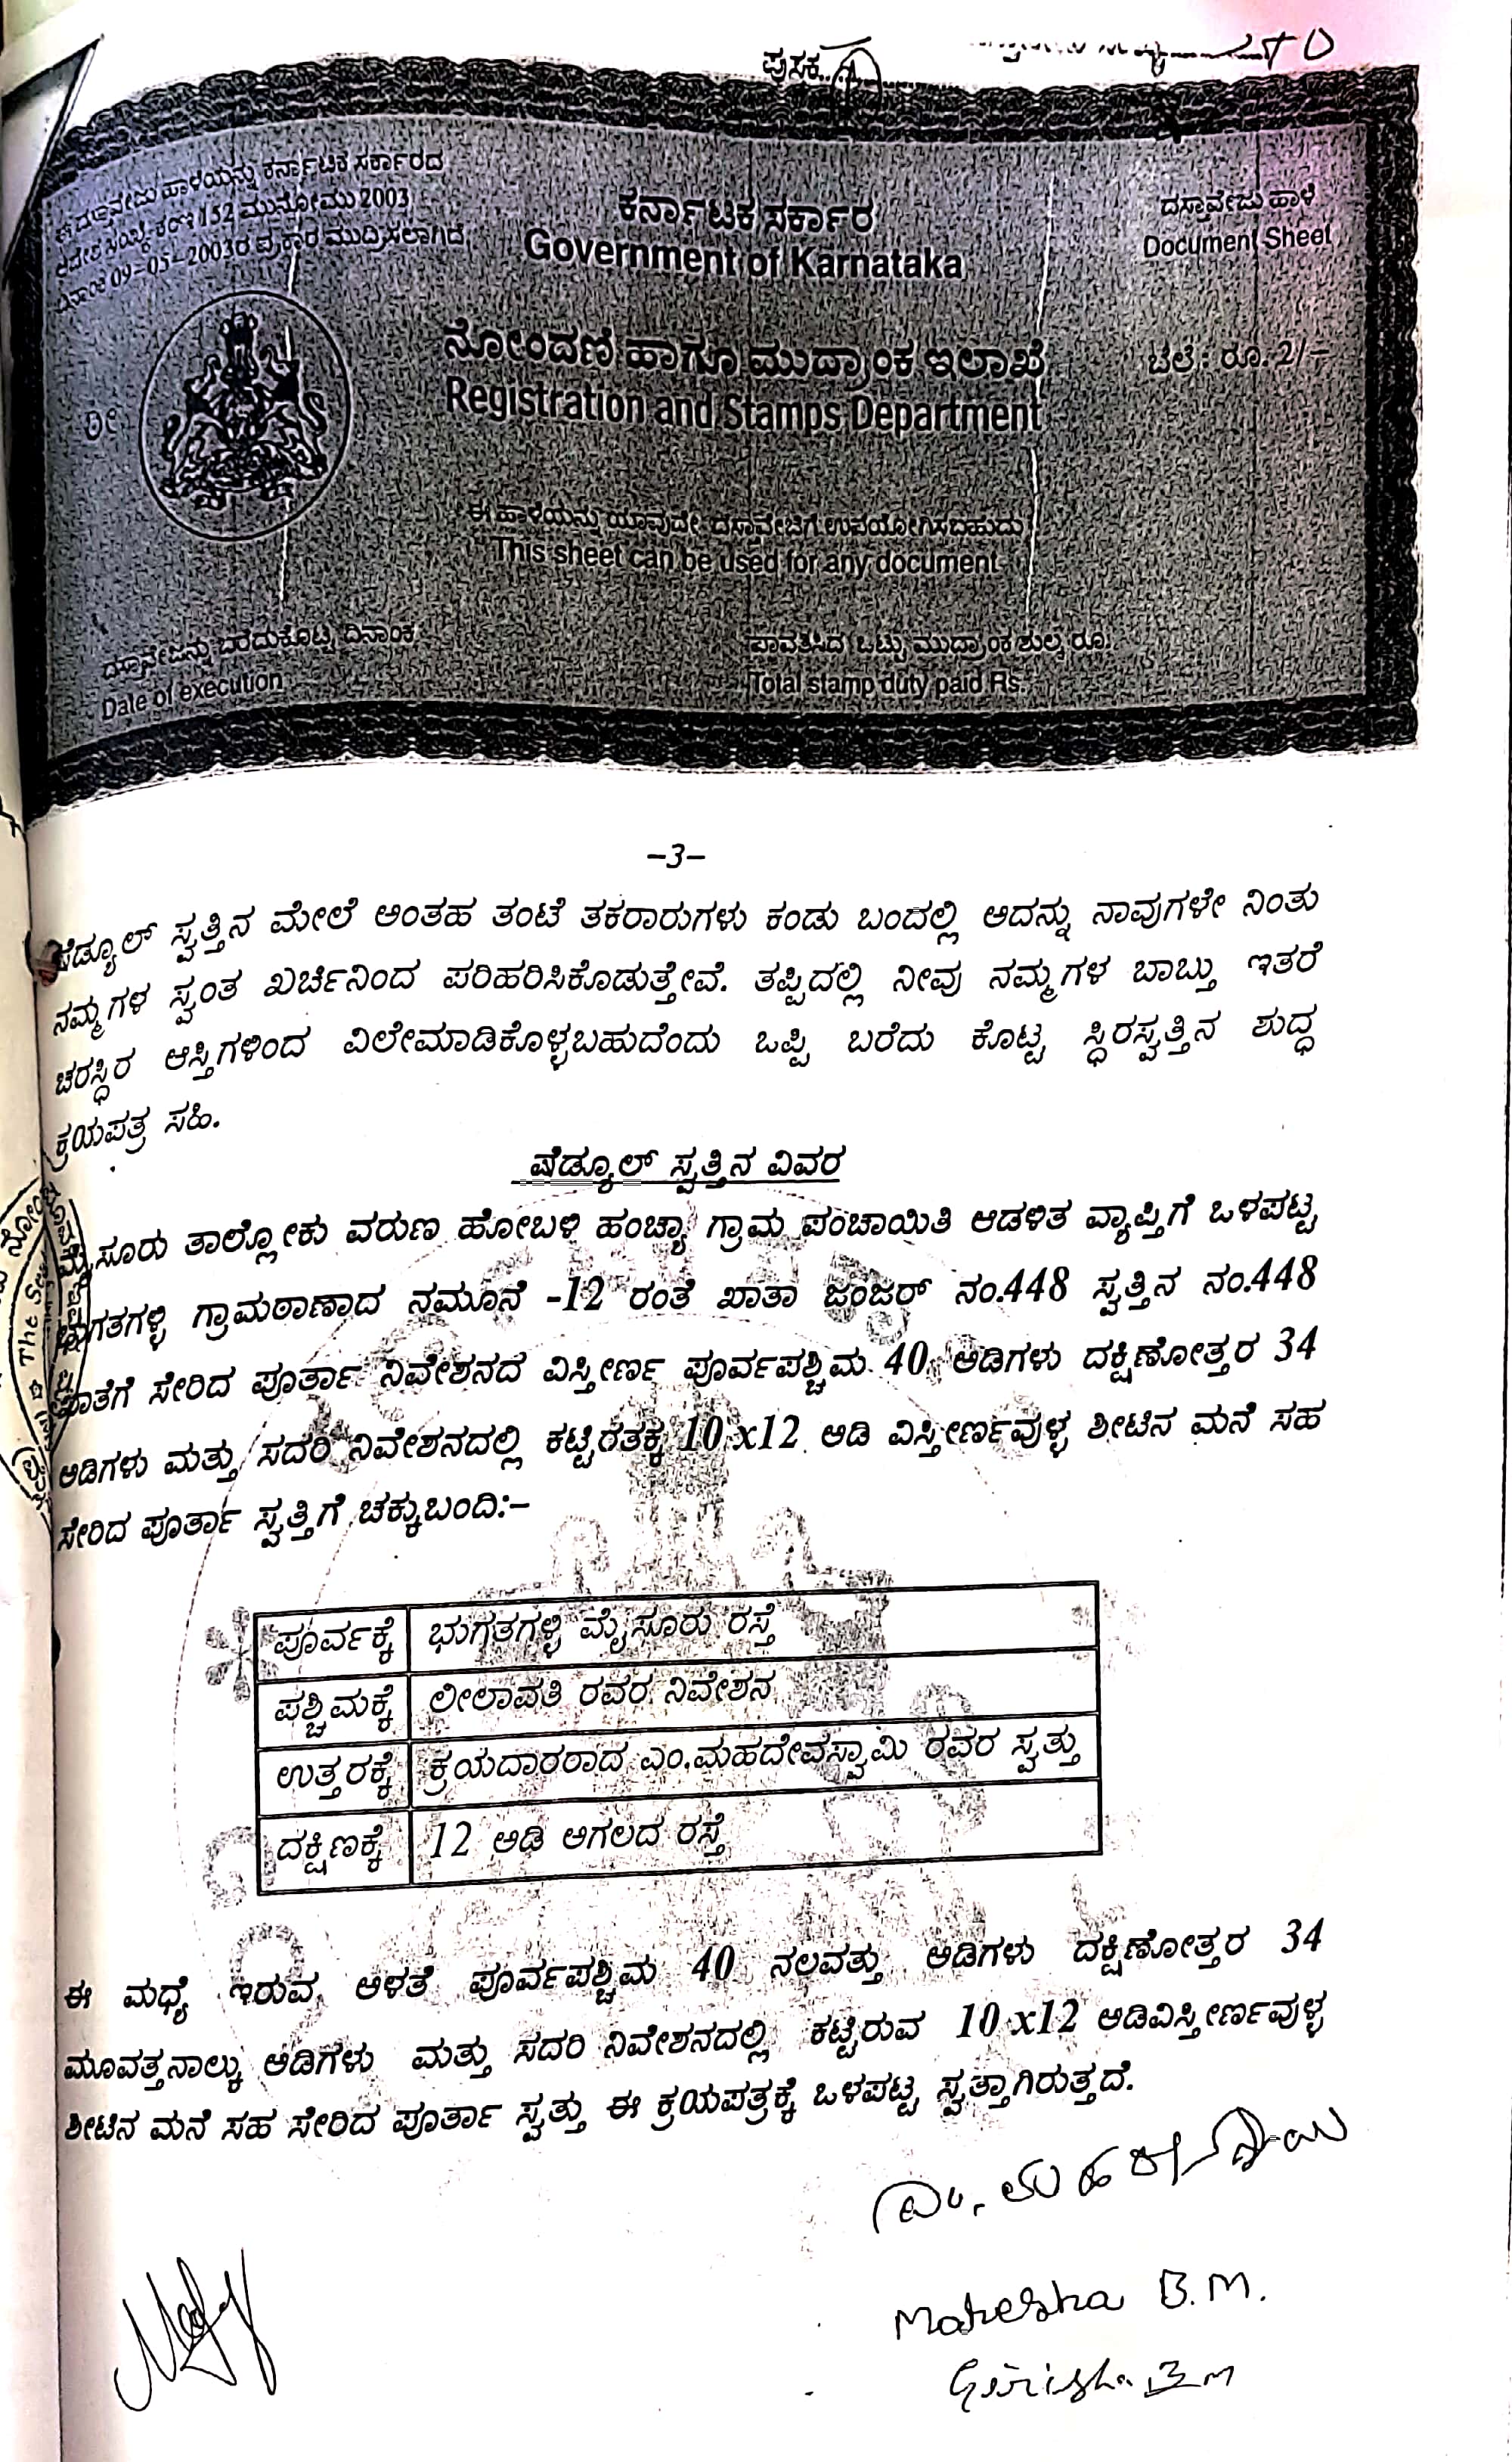 ಪುಸ್ತಕ
ಈ ದಸ್ತಾವೇಜು ಹಾಳೆಯನ್ನು ಕರ್ನಾಟಕ ಸರ್ಕಾರದ
ಆದೇಶ ಸಂಖ್ಯೆ ಕಂಇ 152 ಮುನೋಮು 2003
ದಿನಾಂಕ 09-05-2003ರ ಪ್ರಕಾರ ಮುದ್ರಿಸಲಾಗಿದೆ
ಕರ್ನಾಟಕ ಸರ್ಕಾರ
Government of Karnataka
ದಸ್ತಾವೇಜು ಹಾಳೆ
Document Sheet
ನೋಂದಣಿ ಹಾಗೂ ಮುದ್ರಾಂಕ ಇಲಾಖೆ
Registration and Stamps Department
ಬೆಲೆ: ರೂ. 2/-
ಈ ಹಾಳೆಯನ್ನು ಯಾವುದೇ ದಸ್ತಾವೇಜಿಗೆ ಉಪಯೋಗಿಸಬಹುದು
This sheet can be used for any document
ದಸ್ತಾವೇಜನ್ನು ಬರೆದುಕೊಟ್ಟ ದಿನಾಂಕ
Date of execution
ಪಾವತಿಸಿದ ಒಟ್ಟು ಮುದ್ರಾಂಕ ಶುಲ್ಕ ರೂ.
Total stamp duty paid Rs.
-3-
ಷೆಡ್ಯೂಲ್ ಸ್ವತ್ತಿನ ಮೇಲೆ ಅಂತಹ ತಂಟೆ ತಕರಾರುಗಳು ಕಂಡು ಬಂದಲ್ಲಿ ಅದನ್ನು ನಾವುಗಳೇ ನಿಂತು
ನಮ್ಮಗಳ ಸ್ವಂತ ಖರ್ಚಿನಿಂದ ಪರಿಹರಿಸಿಕೊಡುತ್ತೇವೆ. ತಪ್ಪಿದಲ್ಲಿ ನೀವು ನಮ್ಮಗಳ ಬಾಬ್ತು ಇತರೆ
ಚರಸ್ಥಿರ ಆಸ್ತಿಗಳಿಂದ ವಿಲೇಮಾಡಿಕೊಳ್ಳಬಹುದೆಂದು ಒಪ್ಪಿ ಬರೆದು ಕೊಟ್ಟ ಸ್ಥಿರಸ್ವತ್ತಿನ ಶುದ್ಧ
ಕ್ರಯಪತ್ರ ಸಹಿ.
ಷೆಡ್ಯೂಲ್ ಸ್ವತ್ತಿನ ವಿವರ
ಮೈಸೂರು ತಾಲ್ಲೋಕು ವರುಣ ಹೋಬಳಿ ಹಂಚ್ಯಾ ಗ್ರಾಮ ಪಂಚಾಯಿತಿ ಆಡಳಿತ ವ್ಯಾಪ್ತಿಗೆ ಒಳಪಟ್ಟ
ಭುಗತಗಳ್ಳಿ ಗ್ರಾಮಠಾಣಾದ ನಮೂನೆ -12 ರಂತೆ ಖಾತಾ ಜಂಜರ್ ನಂ.448 ಸ್ವತ್ತಿನ ನಂ.448
ಖಾತೆಗೆ ಸೇರಿದ ಪೂರ್ತಾ ನಿವೇಶನದ ವಿಸ್ತೀರ್ಣ ಪೂರ್ವಪಶ್ಚಿಮ 40 ಅಡಿಗಳು ದಕ್ಷಿಣೋತ್ತರ 34
ಅಡಿಗಳು ಮತ್ತು ಸದರಿ ನಿವೇಶನದಲ್ಲಿ ಕಟ್ಟಿರತಕ್ಕ 10 x12 ಅಡಿ ವಿಸ್ತೀರ್ಣವುಳ್ಳ ಶೀಟಿನ ಮನೆ ಸಹ
ಸೇರಿದ ಪೂರ್ತಾ ಸ್ವತ್ತಿಗೆ ಚಕ್ಕುಬಂದಿ:-
The
ಪೂರ್ವಕ್ಕೆ ಭುಗತಗಳ್ಳಿ ಮೈಸೂರು ರಸ್ತೆ
ಪಶ್ಚಿಮಕ್ಕೆ ಲೀಲಾವತಿ ರವರ ನಿವೇಶನ
ಉತ್ತರಕ್ಕೆ ಕ್ರಯದಾರರಾದ ಎಂ.ಮಹದೇವಸ್ವಾಮಿ ರವರ ಸ್ವತ್ತು
ದಕ್ಷಿಣಕ್ಕೆ 12 ಅಡಿ ಅಗಲದ ರಸ್ತೆ
ಈ ಮಧ್ಯೆ ಇರುವ ಅಳತೆ ಪೂರ್ವಪಶ್ಚಿಮ 40 ನಲವತ್ತು ಅಡಿಗಳು ದಕ್ಷಿಣೋತ್ತರ 34
ಮೂವತ್ತನಾಲ್ಕು ಅಡಿಗಳು ಮತ್ತು ಸದರಿ ನಿವೇಶನದಲ್ಲಿ ಕಟ್ಟಿರುವ 10 x12 ಅಡಿವಿಸ್ತೀರ್ಣವುಳ್ಳ
ಶೀಟಿನ ಮನೆ ಸಹ ಸೇರಿದ ಪೂರ್ತಾ ಸ್ವತ್ತು ಈ ಕ್ರಯಪತ್ರಕ್ಕೆ ಒಳಪಟ್ಟ ಸ್ವತ್ತಾಗಿರುತ್ತದೆ.
Mahesha B.M.
Girisha B M